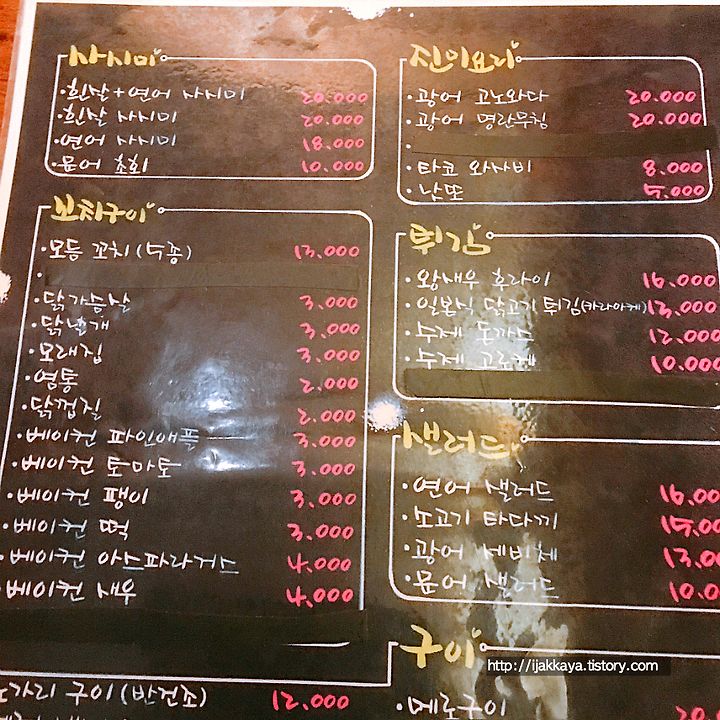 사시미
흰살+연어 사시미 20.000
흰살 사시미 20.000
연어 사시미 18.000
문어 초회 10.000
꼬치구이
모듬 꼬치(5종) 13.000
닭가슴살 3.000
닭날개 3.000
모래집 3.000
염통 2.000
닭껍질 2.000
베이컨 파인애플 3.000
베이컨 토마토 3.000
베이컨 팽이 3.000
베이컨 떡 3.000
베이컨 아스파라거스 4.000
베이컨 새우 4.000
진미요리
광어 고노와다 20.000
광어 명란무침 20.000
타코 와사비 8.000
낫또 5.000
튀김
왕새우 후라이 16.000
일본식 닭고기 튀김(카라아게) 13.000
수제 돈까스 12.000
수제 고로케 10.000
샐러드
연어 샐러드 16.00
소고기 타다끼 15.00
광어 세비체 13.0
문어 샐러드 10.0
구이
노가리 구이(반건조) 12.000
메로구이 20
http://ijakkaya.tistory.com